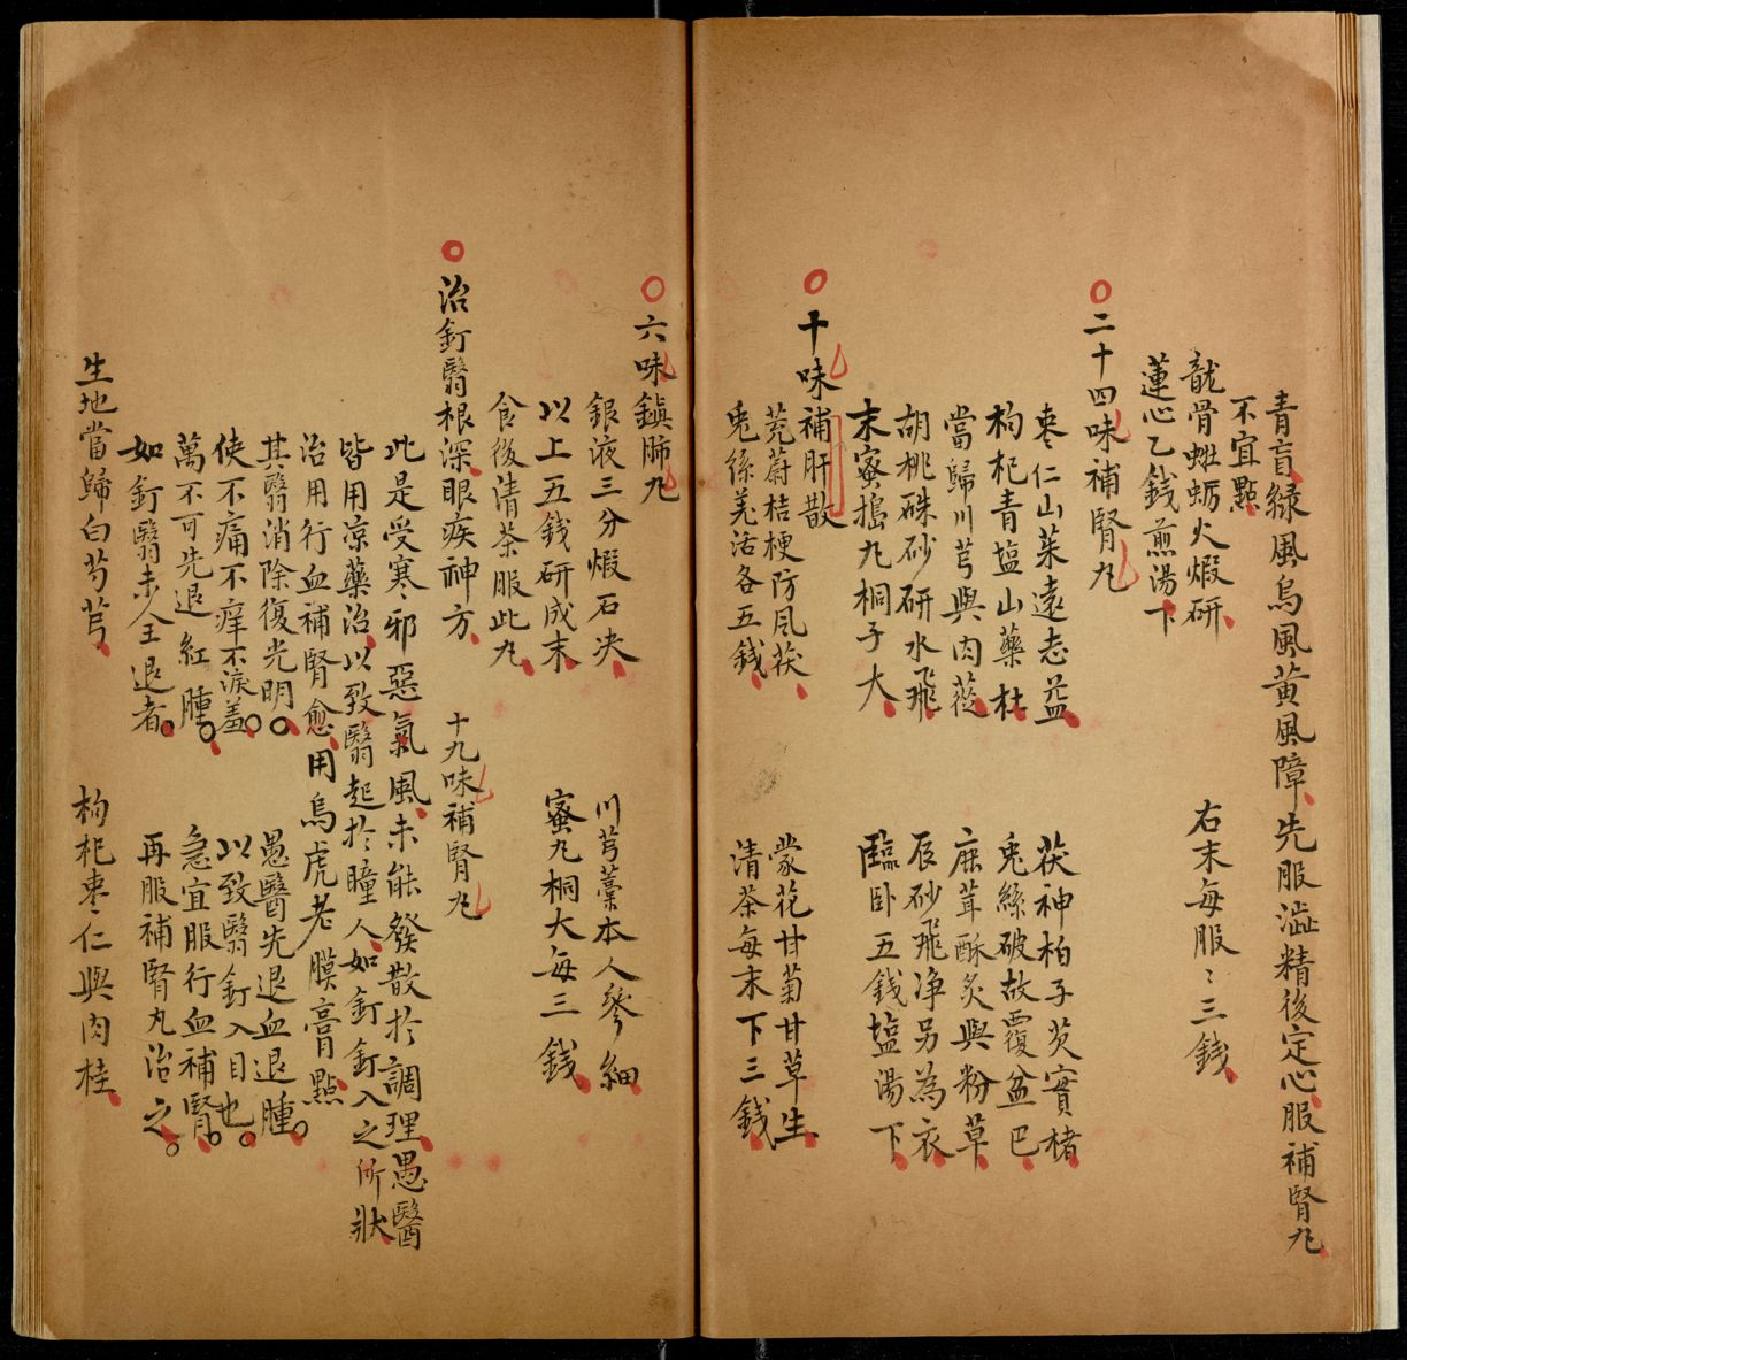 青盲緑風烏風黃風障先服澁精後定心服補腎九
不宜點
龍骨蚍蛎火煆研 右末每服〻三錢
蓮心乙錢煎湯下
二十四味補腎九
枣仁山茱遠志益 茯神柏子芡實楮
枸杞青塩山藥杜 兎絲破故覆盆巴
當歸川芎與肉蓯 鹿茸酥炙與粉草
胡桃硃砂研水飛 辰砂飛净另為衣
末蜜搗九桐子大 臨卧五錢塩湯下
十味補肝散
茺蔚桔梗防風茯 蒙花甘菊甘草生
兎絲羌活各五錢 清茶每末下三錢
六味鎮肺九
銀液三分煆石决 川芎藁本人參細
以上五錢研成末 蜜九桐大每三錢
食後清茶服此九
治釘翳根深眼疾神方 十九味補腎九
此是受寒邪惡氣風未能發散於調理愚醫
皆用凉藥治以致翳起於瞳人如釘釘入之所狀
治用行血補腎愈用烏虎老膜膏點
其翳消除復光明 愚醫先退血退腫
使不痛不痒不淚羞 以致翳釘入目也
萬不可先退紅腫 急宜服行血補腎
如釘翳未全退者 再服補腎丸治之
生地當歸白芍芎 枸杞枣仁與肉桂